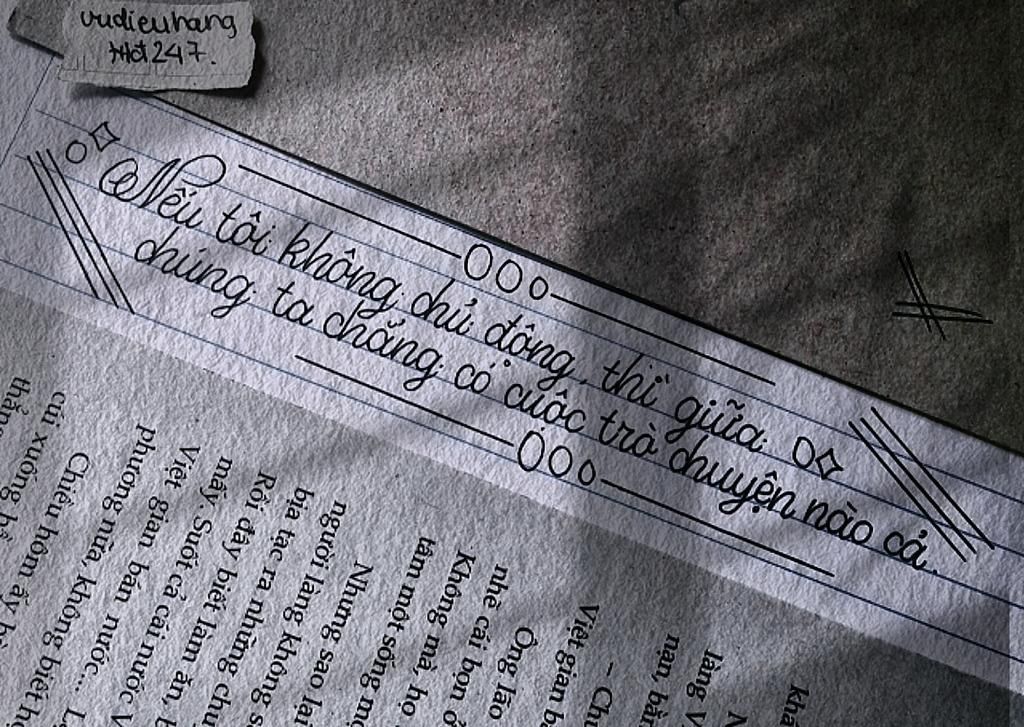 vudieuhang
247.
Nếu tôi không chủ động, thì giữa
chúng ta chẳng có cuộc trò chuyện nào cả.
khá
làng V
nan, bàn
– Ch
Việt gian b
Ông lão
nhè cái bọn ở
Không mà, họ
tâm một sống m
Nhưng sao lại
người làng không
bịa tạc ra những chu
Rồi đây biết làm ăn,
mấy. Suốt cả cái nước V
Việt gian bán nước...
phương nữa, không biết h
Chiều hôm ấy
cúi xuống
thẳng